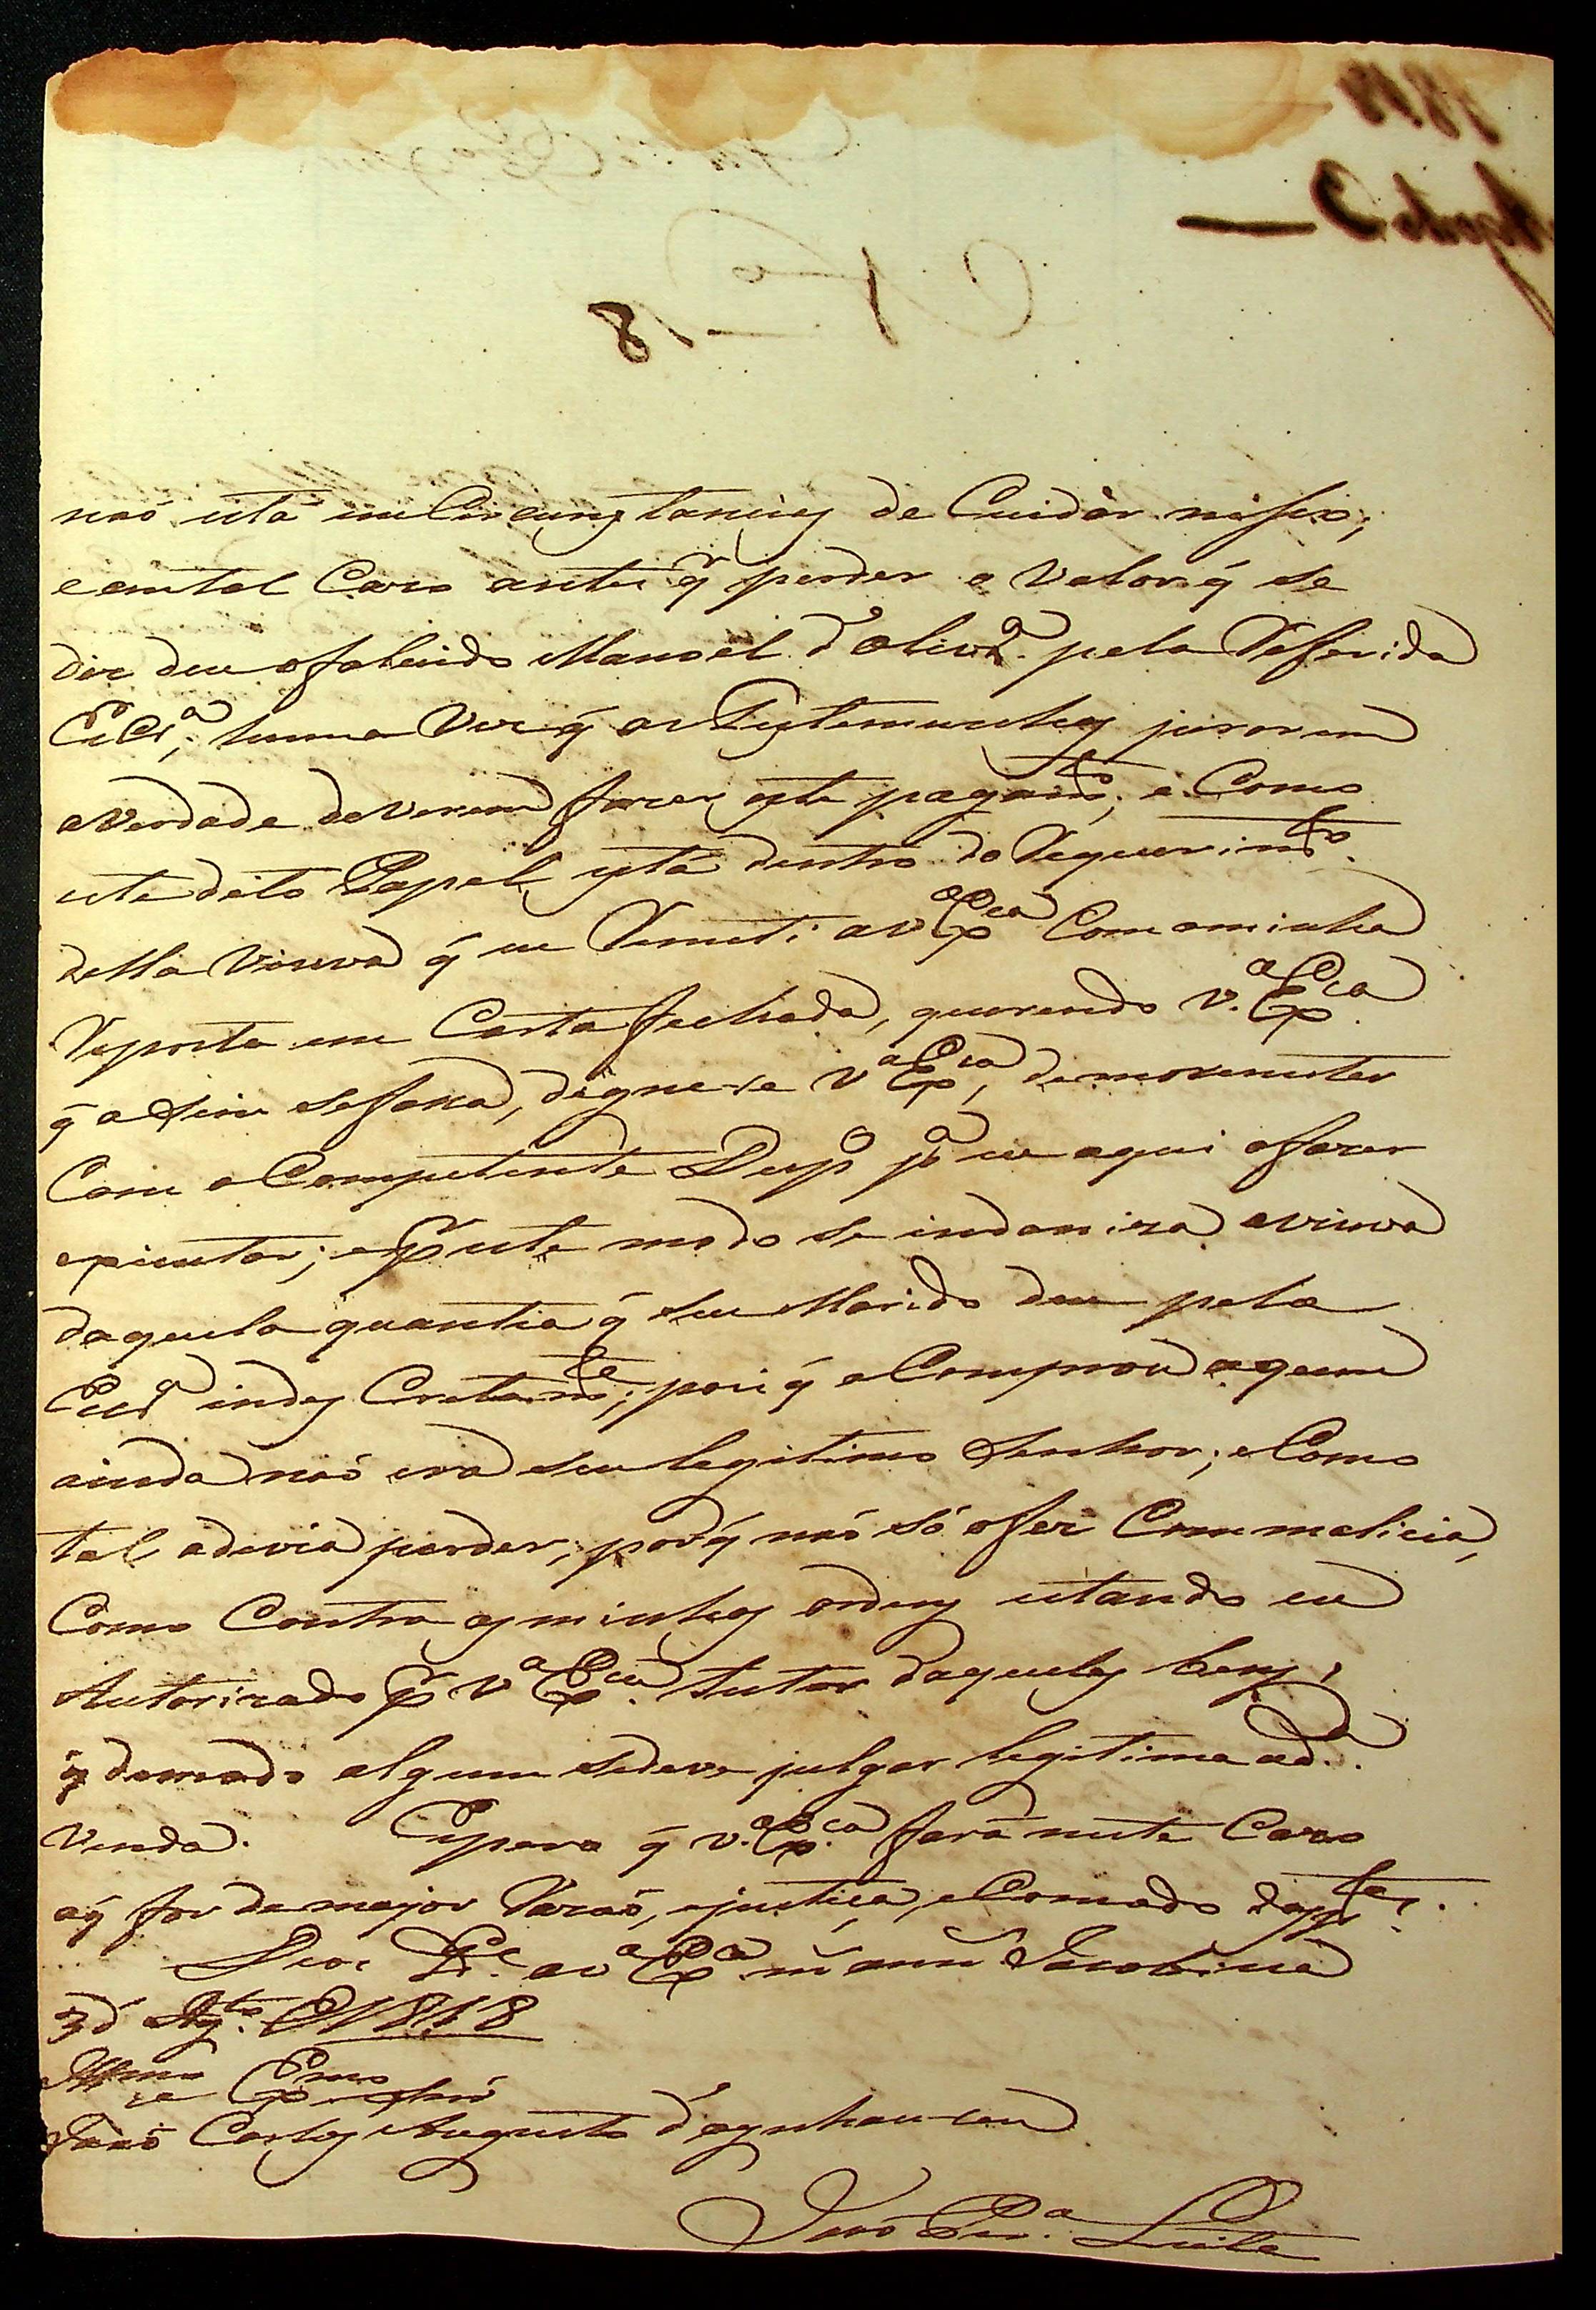 naó está em Circunstancias de Cuidàr nisso;
e em tal Cazo antes q̃ perder o Valor q̃ se
diz deu o falecido Manoel d'Olivr.ª pela Referida
Escr.ª, huma Vez q̃ as Testemunhas jurarem
a Verdade deverem fazer este pagam.to; e Como
este dito Papel está dentro do Requerim.to
della viuva q̃ eu Remeti a V.ª Ex.cia Com a minha
Reposta em Carta fechada, querendo V.ª Ex.cia
q̃ a sim se fassa, digne-se V.ª Ex.cia, de mo remeter
Com o Competente Desp.º p.ª eu aqui o fazer
expicutar; e p̃ este modo se indaniza a viuva
daquela quantia q̃ seu Marido deu pela
Escr.ª indescretam.te; pois q̃ a Comprou a quem
ainda naó era seu legitimo Senhor; e Como
tal a devia perder; porq̃ naó só o fez Com malicia,
Como Contra as minhas ordens estando eu
Autorizado p̃ V.ª Ex.cia tutor daqueles bens,
q̃ de modo algum se deve julgar legitima a d.ª
Venda. Espero q̃ V.ª Ex.cia fará neste Cazo
o q̃ for de major Razaó, e justiça, e Comado das p.tes.
Deos G.e a V.ª Ex.ª m.s ann.s Jacobina
3 d' Ag.to de 1818
Ill.mo e Ex.mo Snr'
Joaó Carlos Augusto d'Oeynhausen
Joaó Per.ª Leite